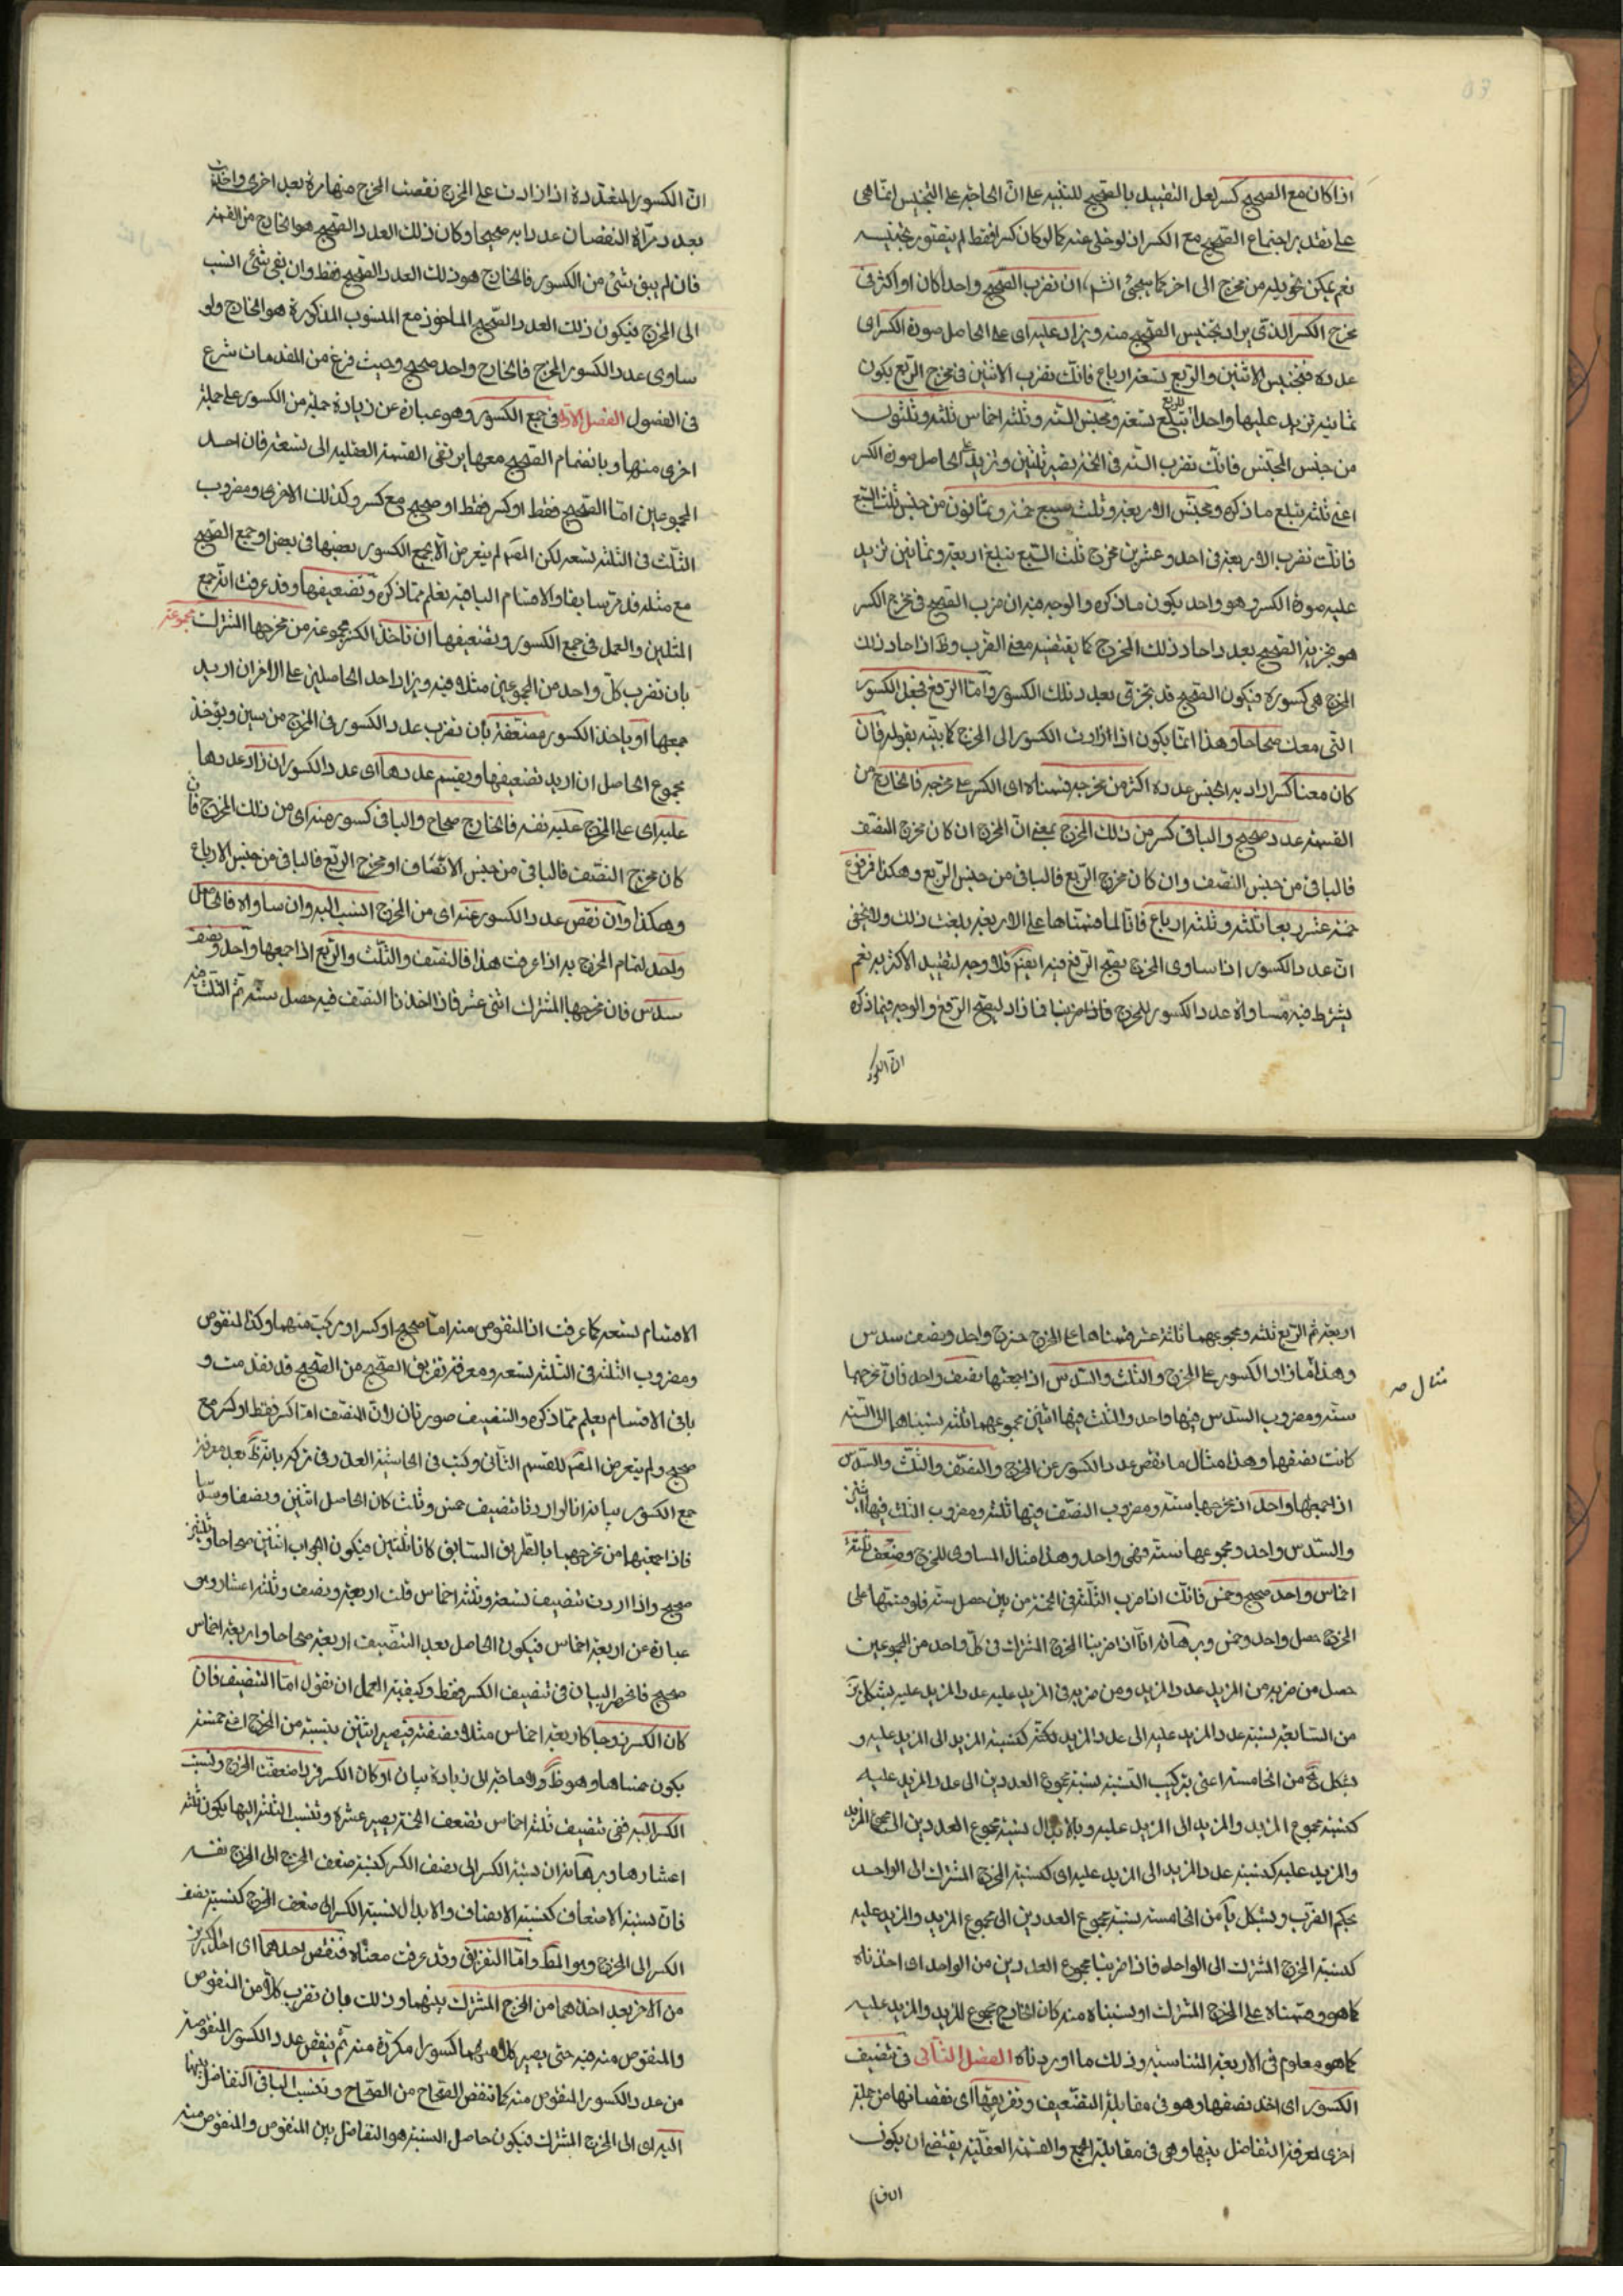 اذا كان مع الصحيح كسر لعل التقييد بالصحيح للتنبيه على انّ الحاجة على التجنيس انما هى
على تقدير اجتماع الصحيح مع الكسر اذ لو خلى عنه كما لو كان كسرا فقط لم يتصور تجنيسه
نعم يمكن تحويله من مخرج الى اخر كما سيجئ ان تضرب الصحيح واحدا كان او اكثر فى
مخرج الكسر الذى يراد تجنيس الصحيح منه ويزاد عليه اى على الحاصل صورة الكسر اى
عدده فتجنيس الاثنين والربع تسعة ارباع فانك تضرب الاثنين فى مخرج الربع يكون
ثمانية تزيد عليها واحدا للربع تبلغ تسعة ومجنس الستة وثلثة اخماس ثلثة وثلثون
من جنس المجنس فانك تضرب الستة فى الخمسة يصير ثلثين وتزيد على الحاصل صورة الكسر
اعنى ثلثة تبلغ ما ذكره ومجنس الاربعة وثلث سبع خمسة وثمانون من جنس ثلث السبع
فانك تضرب الاربعة فى احد وعشرين مخرج ثلث السبع تبلغ اربعة وثمانين تزيد
عليه صورة الكسر وهو واحد يكون ما ذكره والوجه فيه ان ضرب الصحيح فى مخرج الكسر
هو تجزية الصحيح بعدد احاد ذلك المخرج كما يقتضيه معنى الضرب وظ ان احاد ذلك
المخرج هى كسوره فيكون الصحيح قد تجزى بعدد تلك الكسور وامّا الرفع فجعل الكسور
التى معك صحاحا وهذا انما يكون اذا ازادت الكسور الى المخرج كما بيّنه بقوله فان
كان معنا كسر اراد به الجنس عدده اكثر من مخرجه قسمناه اى الكسر على مخرجه فالخارج من
القسمة عدد صحيح والباقى كسر من ذلك المخرج بمعنى انّ المخرج ان كان مخرج النصف
فالباقى من جنس النصف وان كان مخرج الربع فالباقى من جنس الربع وهكذا فمرفوع
خمسة عشر ربعا ثلثة وثلثة ارباع فانا لما قسمناها على الاربعة بلغت ذلك ولا يخفى
انّ عدد الكسور اذا ساوى المخرج يصح الرفع فيه ايضا فلا وجه لتقييد الاكثرية نعم
يشترط فيه مساواة عدد الكسور للمخرج فاذا ضربنا فما زاد ليصح الرفع والوجه فيما ذكره
ان الكسور
انّ الكسور المتعددة اذا زادت على المخرج نقصت المخرج منها مرة بعد اخرى واخذت
بعدد مرّات النقصان عددا به صحيحا وكان ذلك العدد الصحيح هو الخارج من القسمة
فان لم يبق شئ من الكسور فالخارج هو ذلك العدد الصحيح فقط وان بقى شئ انسب
الى المخرج فيكون ذلك العدد الصحيح الماخوذ مع المنسوب المذكورة هو الخارج ولو
ساوى عدد الكسور المخرج فالخارج واحد صحيح وحيث فرغ من المقدمات شرع
فى الفصول الفصل الاوّل فى جمع الكسور وهو عبارة عن زيادة جملة من الكسور على جملة
اخرى منها وبانضمام الصحيح معها يرتقى القسمة العقلية الى تسعة فان احد
المجموعين امّا الصحيح فقط او كسر فقط او صحيح مع كسر وكذلك الاخرى ومضروب
الثلث فى الثلثة تسعة لكن المصّ لم يتعرض الّا لجمع الكسور بعضها فى بعض او جمع الصحيح
مع مثله قد مرّ سابقا والاقسام الباقية تعلم مما ذكره وتضعيفها وقد عرفت انه جمع
المثلين والعمل فى جمع الكسور وتضعيفها ان تاخذ الكثر مجموعة من مخرجها المشترك مجموعة
بان تضرب كلّ واحد من المجموعين مثلا فيه ويزاد احد الحاصلين على الاخر ان اريد
جمعها او ياخذ الكسور مضعّفة بأن تضرب عدد الكسور فى المخرج مرتين ويؤخذ
مجموع الحاصل ان اريد تضعيفها ويقسم عددها اى عدد الكسور ان زاد عددها
عليه اى على المخرج عليه نفسه فالخارج صحاح والباقى كسور منه اى من ذلك المخرج فان
كان مخرج النصّف فالباقى من جنس الانصّاف او مخرج الربّع فالباقى من جنس الارباع
وهكذا وان نقص عدد الكسور عنه اى من المخرج انسب اليه وان ساواه فالحاصل
واحد لتمام المخرج به اذا عرفت هذا فالنصّف والثلّث والربّع اذا جمعها واحد ونصف
سدس فان مخرجها المشترك اثنى عشر فاذا اخذنا النصّف فيه حصل ستة ثم الثلث منه
اربعة ثم الربّع ثلثة ومجموعهما ثلثة عشر قسمناها على المخرج خرج واحد ونصف سدس
وهذا ممّا زاد الكسور على المخرج والثلث والسّدس اذا جمعتها نصف واحد فان مخرجهما
مثال صه
ستة ومضروب السّدس فيها واحد والثّلث فيها اثنين مجموعهما ثلثة نسبناها الى الستة
كانت نصفها وهذا مثال ما نقص عدد الكسور عن المخرج والنصّف والثّلث والسّدس
اذا جمعها واحد اذ مخرجها ستة ومضروب النصّف فيها ثلثة ومضروب الثلث فيها اثنين
والسّدس واحد ومجموعها ستة فهى واحد وهذا مثال المساوى للمخرج وضعف ثلثة
اخماس واحد صحيح وخمس فانك اذا ضرب الثلّثة فى الخمسة مرتين حصل ستة فلو قسمتها على
المخرج حصل واحد وخمس وبرهانه انّا اذا ضربنا المخرج المشترك فى كلّ واحد من المجموعين
حصل من ضربه من المزيد عدد المزيد ومن ضربه فى المزيد عليه عدد المزيد عليه بشكل
من السّابعة نسبة عدد المزيد عليه الى عدد المزيد كنسبة المزيد الى المزيد عليه و
بشكل من الخامسة اعنى بتركيب النّسبة نسبة مجموع العددين الى عدد المزيد عليه
كنسبة مجموع المزيد والمزيد الى المزيد عليه وبالابدال نسبة مجموع العددين الى مجموع المزيد
والمزيد عليه كنسبة عدد المزيد الى المزيد عليه اى كنسبة المخرج المشترك الى الواحد
بحكم الضّرب وبشكل يا من الخامسة نسبة مجموع العددين الى مجموع المزيد والمزيد عليه
كنسبة المخرج المشترك الى الواحد فاذا ضربنا مجموع العددين من الواحد اى اخذناه
كما هو وقسمناه على المخرج المشترك او نسبناه منه كان الخارج مجموع المزيد والمزيد عليه
كما هو معلوم فى الاربعة المتناسبة وذلك ما اوردناه الفصل الثّانى فى تنصيف
الكسور اى اخذ نصفها وهو فى مقابلة التضّعيف وتفريقها اى نقصانها من جملة
اخرى لمعرفة التفاضل بينها وهى فى مقابلة الجمع والقسمة العقليّة يقتضى ان يكون
الاقسام
الاقسام تسعة كما عرفت اذ المنقوص منه امّا صحيح او كسر او مركبّ منهما وكذا المنقوص
ومضروب الثلثة فى الثلثة تسعة ومعرفة تفريق الصّحيح من الصّحيح قد تقدمت و
باقى الاقسام يعلم ممّا ذكره والتنصيف صورتان لانّ النصّف امّا كسر فقط او كسر مع
صحيح ولم يتعرض المصّ للقسم الثّانى وكتب فى الحاشية العذر فى تركه بانّه ظ بعد معرفة
جمع الكسور بيانه انا لو اردنا تنصيف خمس وثلث كان الحاصل اثنين ونصفا وسدسا
فاذا جمعتها من مخرجهما بالطّريق السّابق كانا ثلثين فيكون الجواب اثنين صحاحا وثلثين
صحيح واذا اردت تنصيف تسعة وثلثة اخماس قلت اربعة ونصف وثلثة اعشار وهو
عبارة عن اربعة اخماس فيكون الحاصل بعد التنصّيف اربعة صحاحا واربعة اخماس
صحيح فانحصر البيان فى تنصيف الكسر فقط وكيفيّة العمل ان تقول امّا التنصيف فان
كان الكسر زوجا كاربعة اخماس مثلا نصّفته فيصير اثنين بنسبة من المخرج اعنى خمسة
يكون خمساها وهو ظ ولا حاجة الى زيادة بيان او كان الكسر فردا ضعفّت المخرج ونسبت
الكسر اليه ففى تنصيف ثلثة اخماس تضعف الخمسة يصير عشرة وتنسب الثلثة اليها يكون ثلثة
اعشارها وبرهانه ان نسبة الكسر الى نصف الكسر كنسبة ضعف المخرج الى المخرج نفسه
فانّ نسبة الاضعاف كنسبة الانصاف والابدال نسبة الكسر الى ضعف المخرج كنسبة نصف
الكسر الى المخرج وهو المطّ وامّا التفريق وقد عرفت معناه فتنقص احدهما اى احد الكسرين
من الاخر بعد اخذهما من المخرج المشترك بينهما وذلك بان تضرب كلا من المنقوص
والمنقوص منه فيه حتى يصير كلاهما كسورا مكررة منه ثم ينقص عدد الكسور المنقوصة
من عدد الكسور المنقوص منه كما تنقص الصّحاح من الصّحاح وتنسب الباقى التفاضل بينهما
اليه اى الى المخرج المشترك فيكون حاصل النسبة هو التفاضل بين المنقوص والمنقوص منه